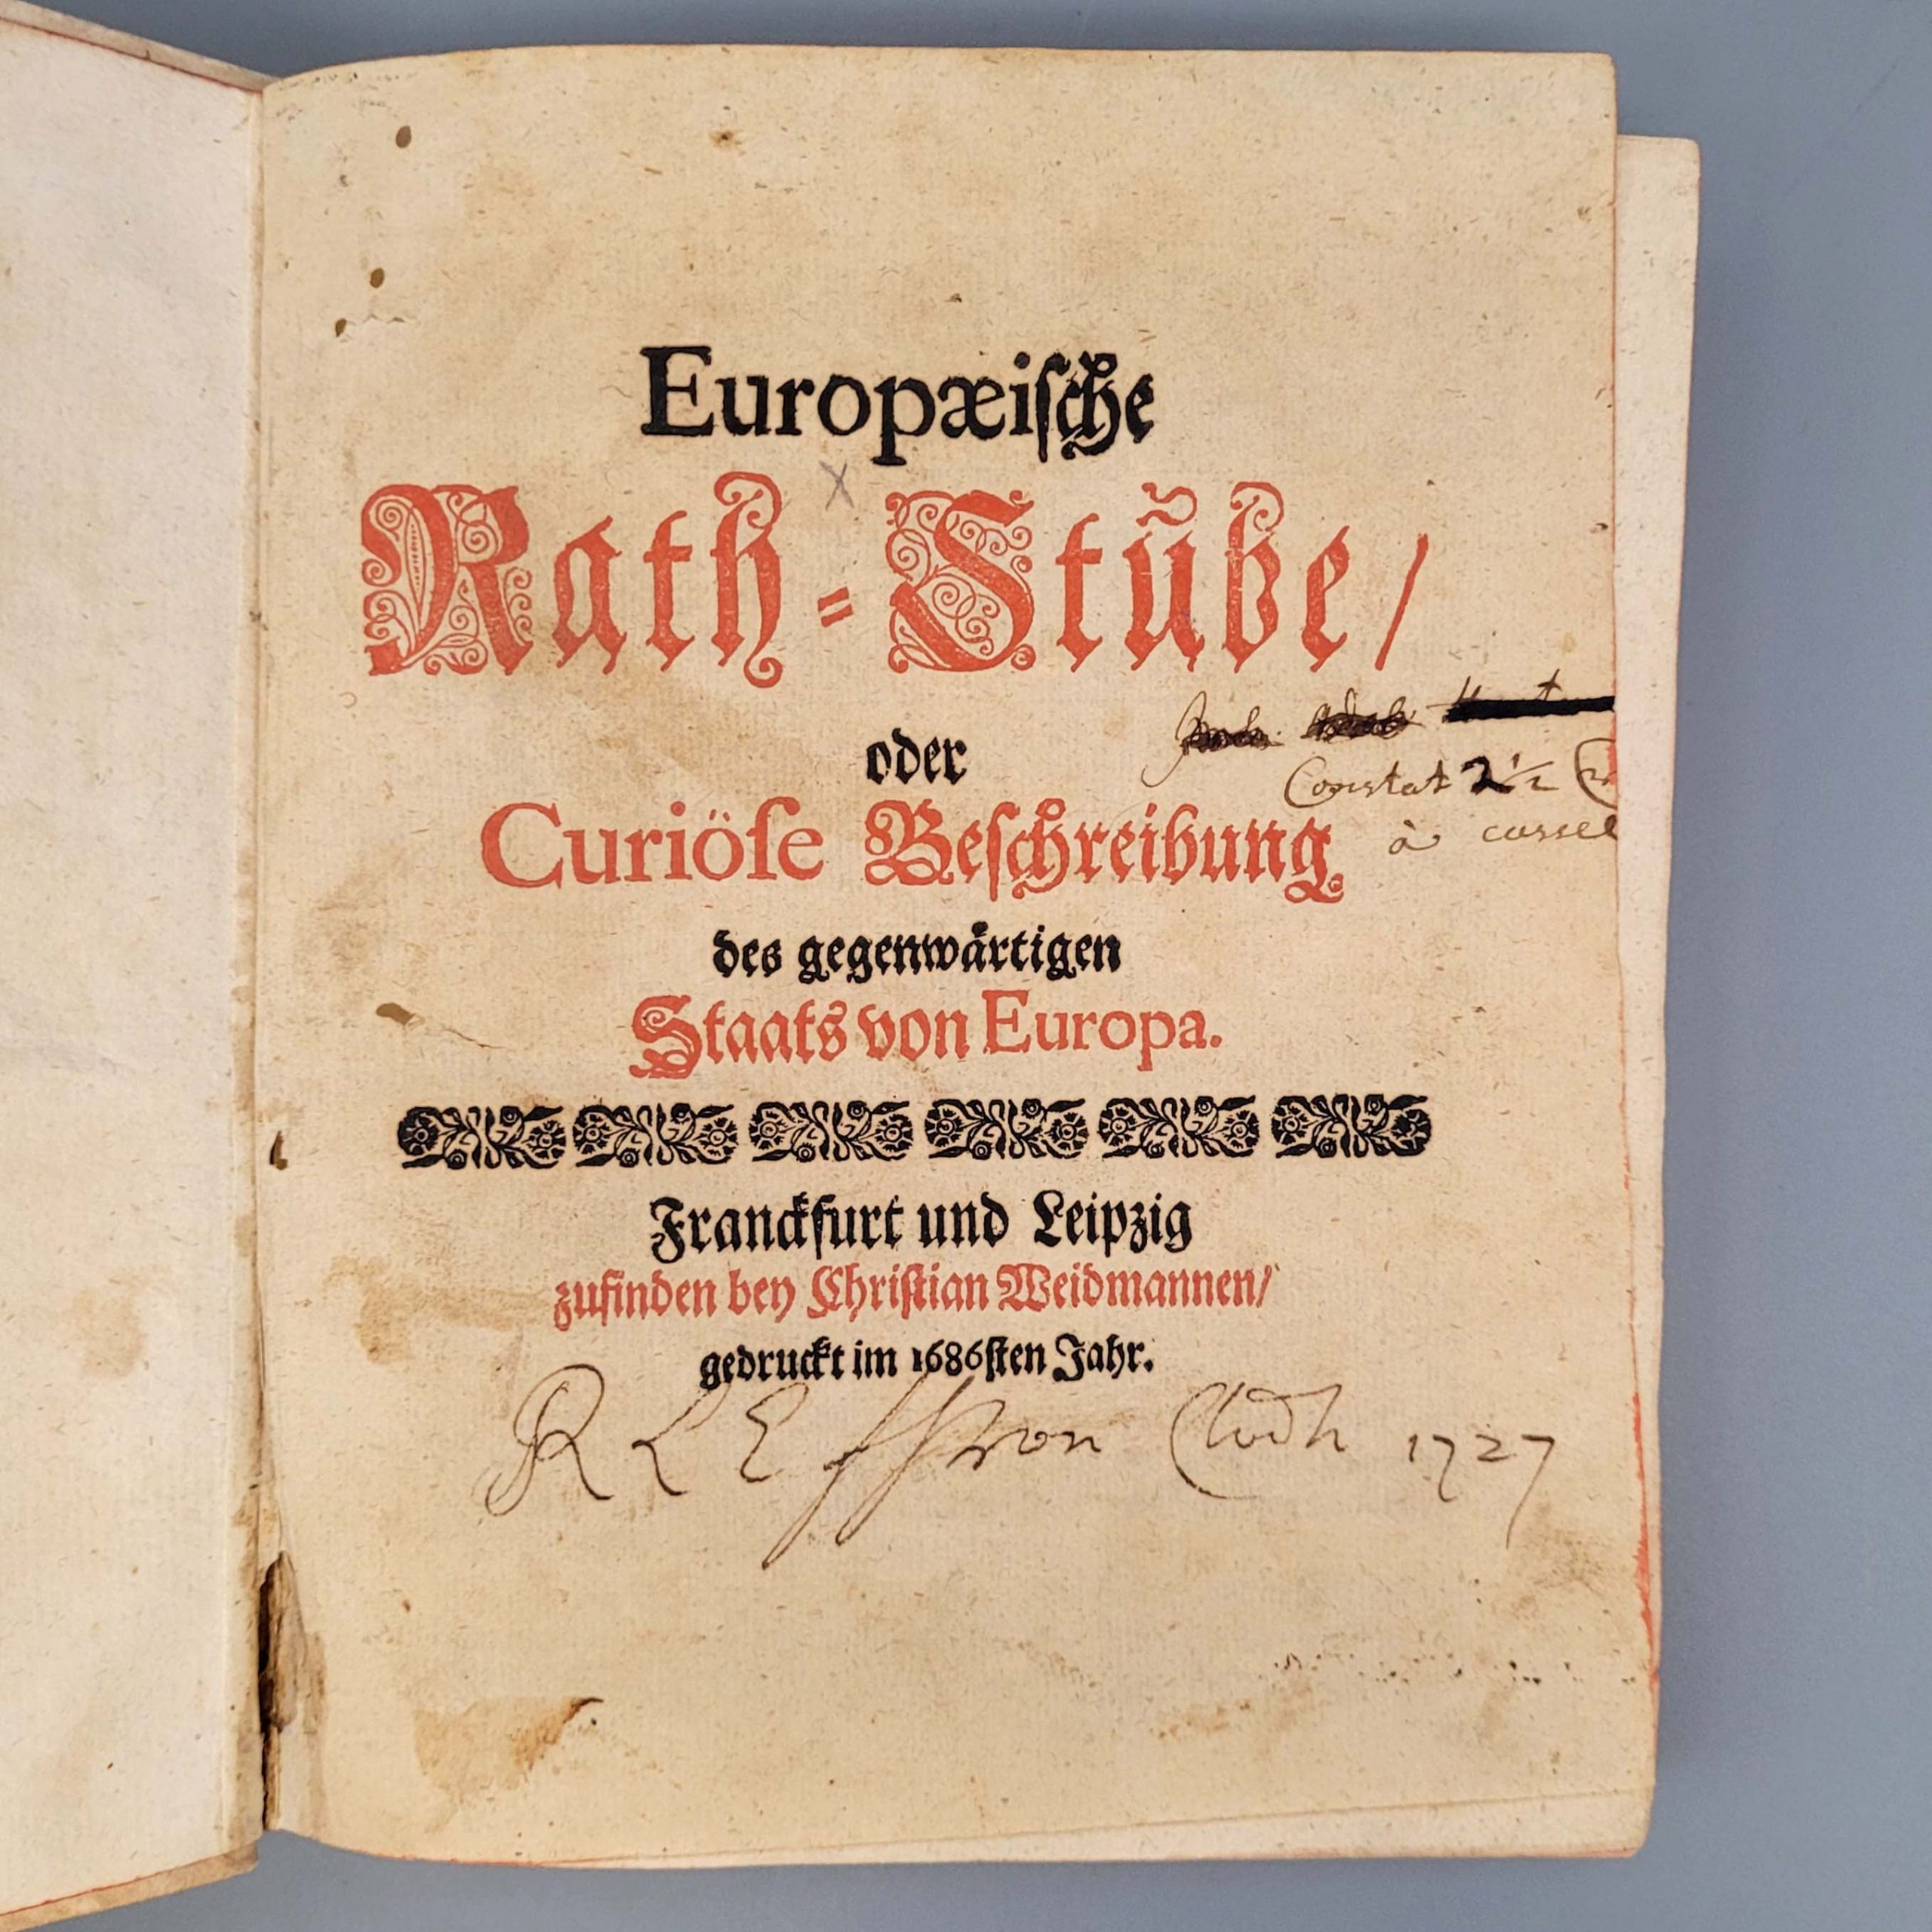 Europæiſche
Rath-Stube/
oder
Constat 2½
Curiöſe Beſchreibung
à cassel
des gegenwärtigen
Staats von Europa.
Franckfurt und Leipzig
zufinden bey Chriſtian Weidmannen/
gedruckt im 1686ſten Jahr.
R L E von 1727